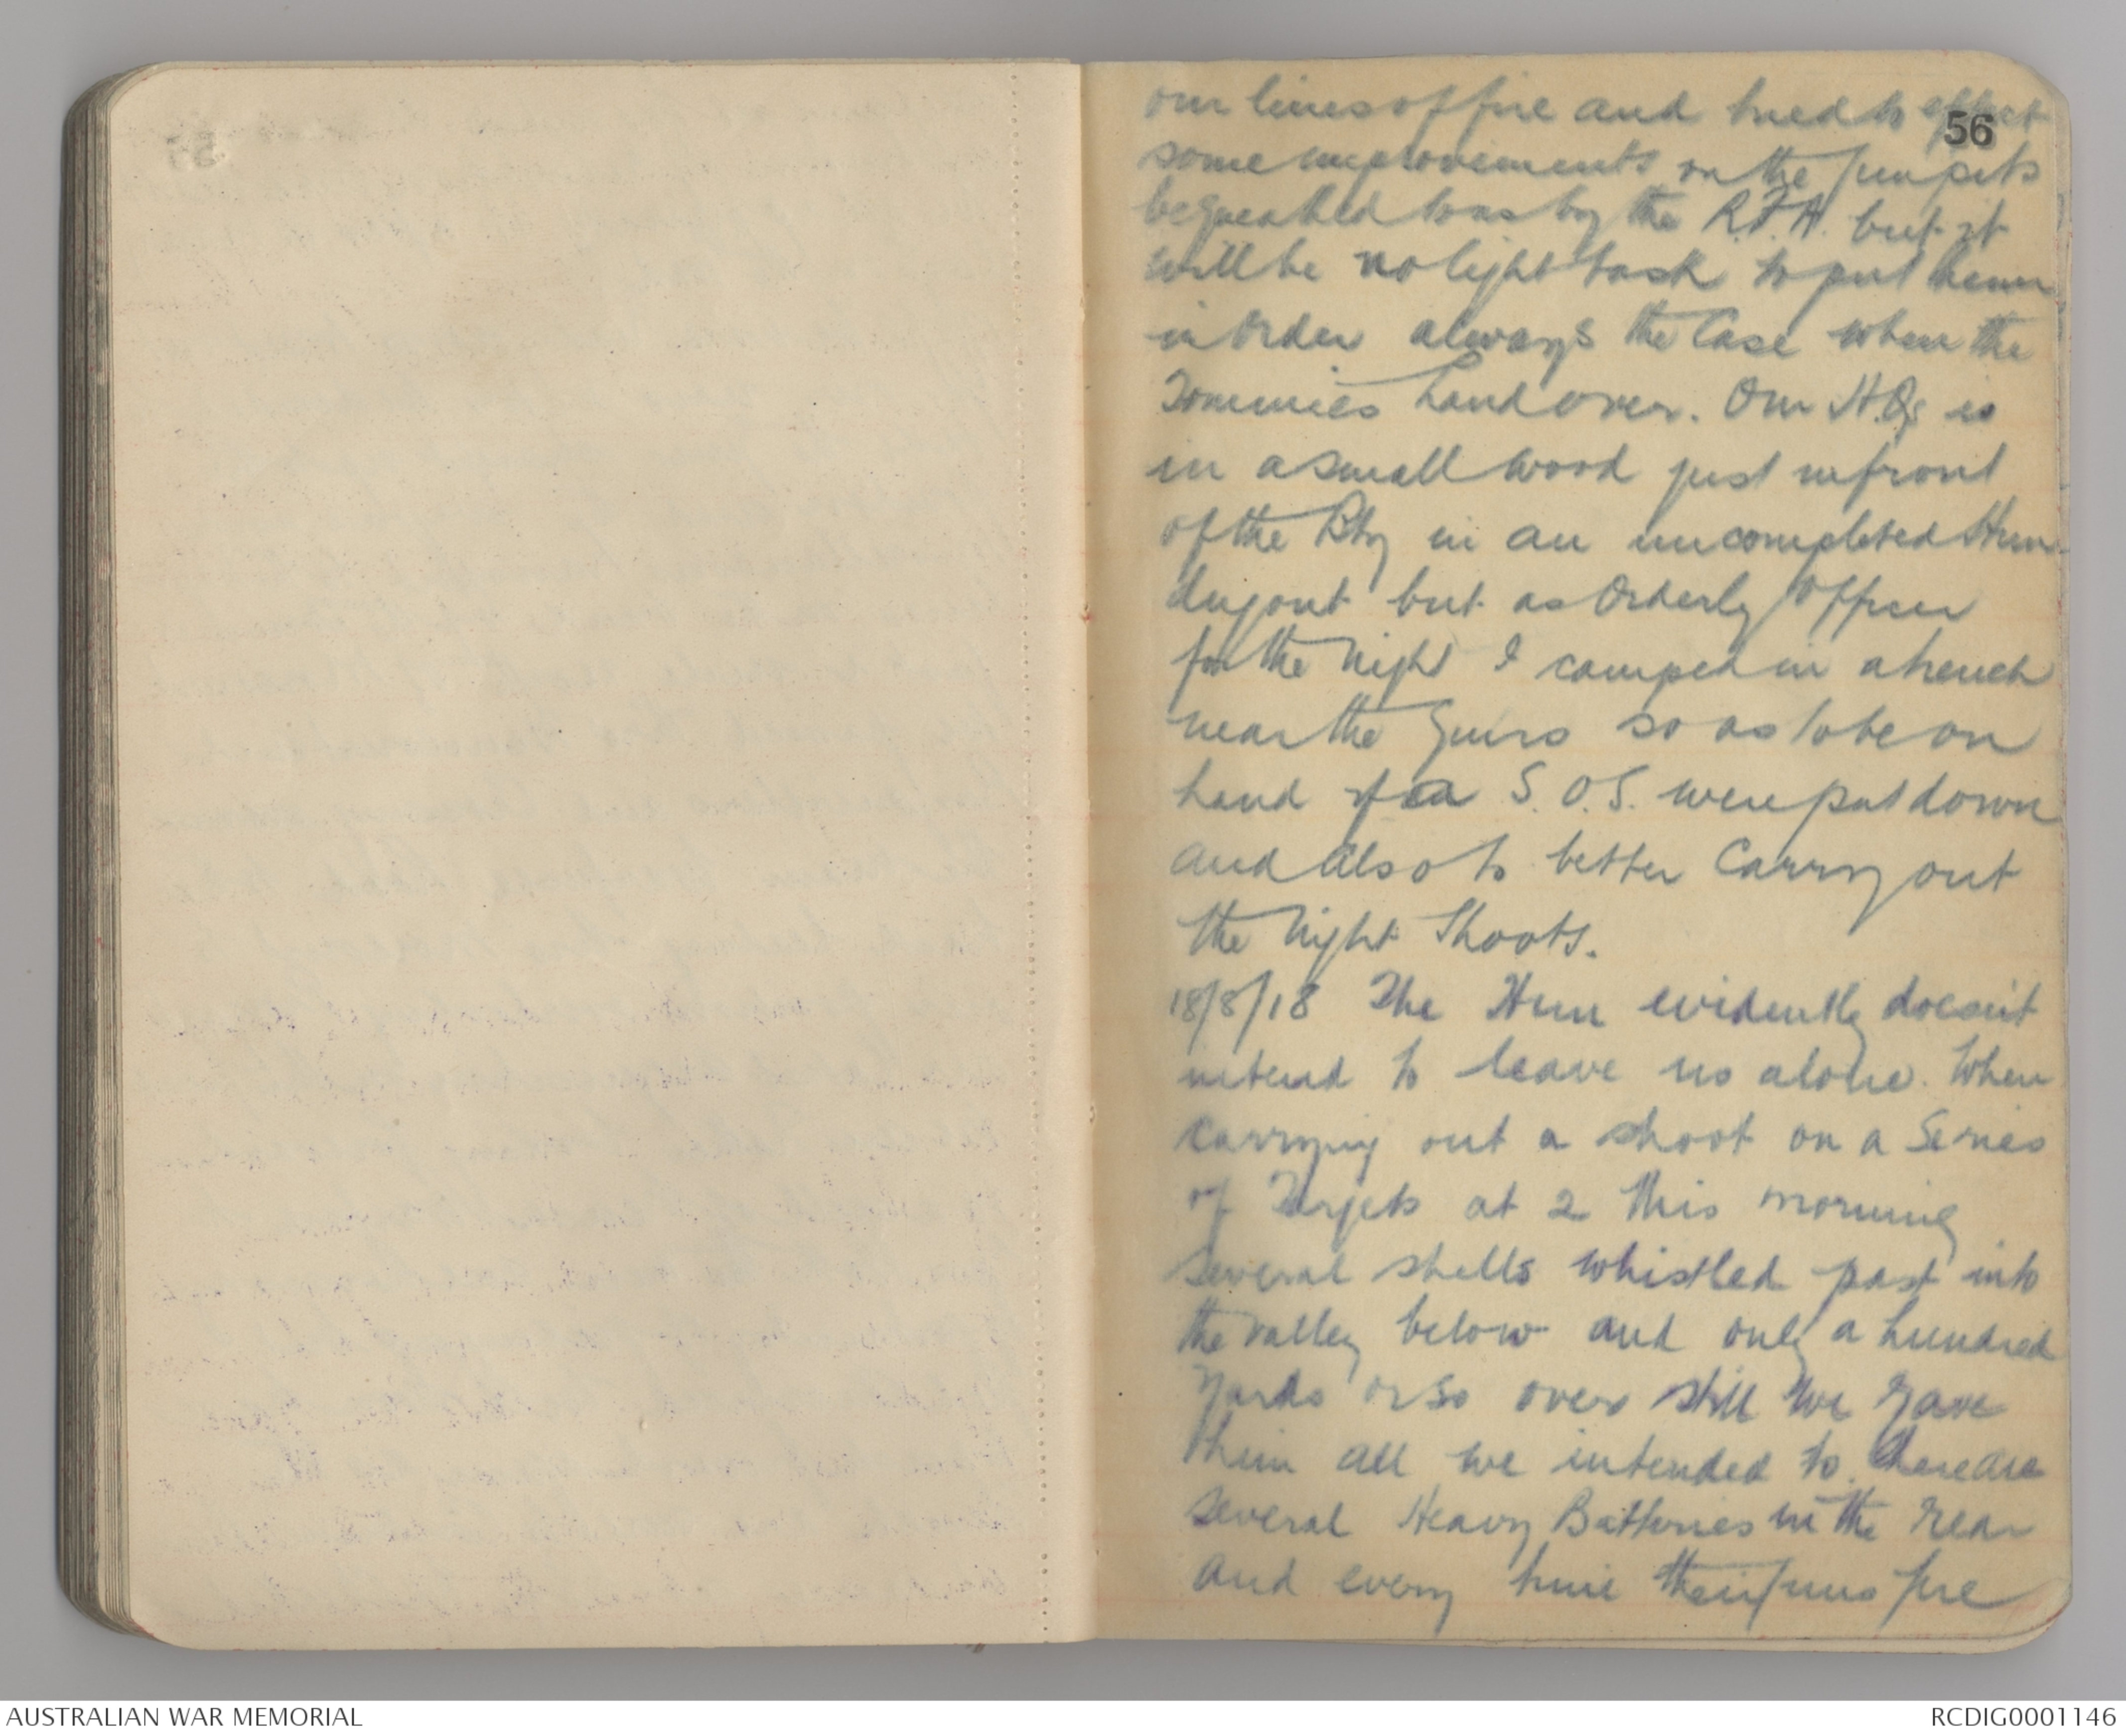 56
our lines of fire and tried to effect
some improvements on the gunpits
bequeathed to us by the R.F.A. but it
will be no light task to put them
in order always the Case when the
Tommies hand over. Our H.Qs is
in a small wood just in front
of the Bty in an uncompleted Hun
dugout but as Orderly Officer
for the night I camped in a trench
near the guns so as to be on
hand if a S.O.S. were put down
and also to better Carry out
the night Shoots.
18/8/18 The Hun evidently doesn't
intend to leave us alone. When
carrying out a shoot on a Series
of Targets at 2 this morning
several shells whistled past into
the valley below and only a hundred
yards or so over still we gave
them all we intended to. There are
several Heavy Batteries in the rear
and every time their guns fire
AUSTRALIAN WAR MEMORIAL
RCDIG0001146